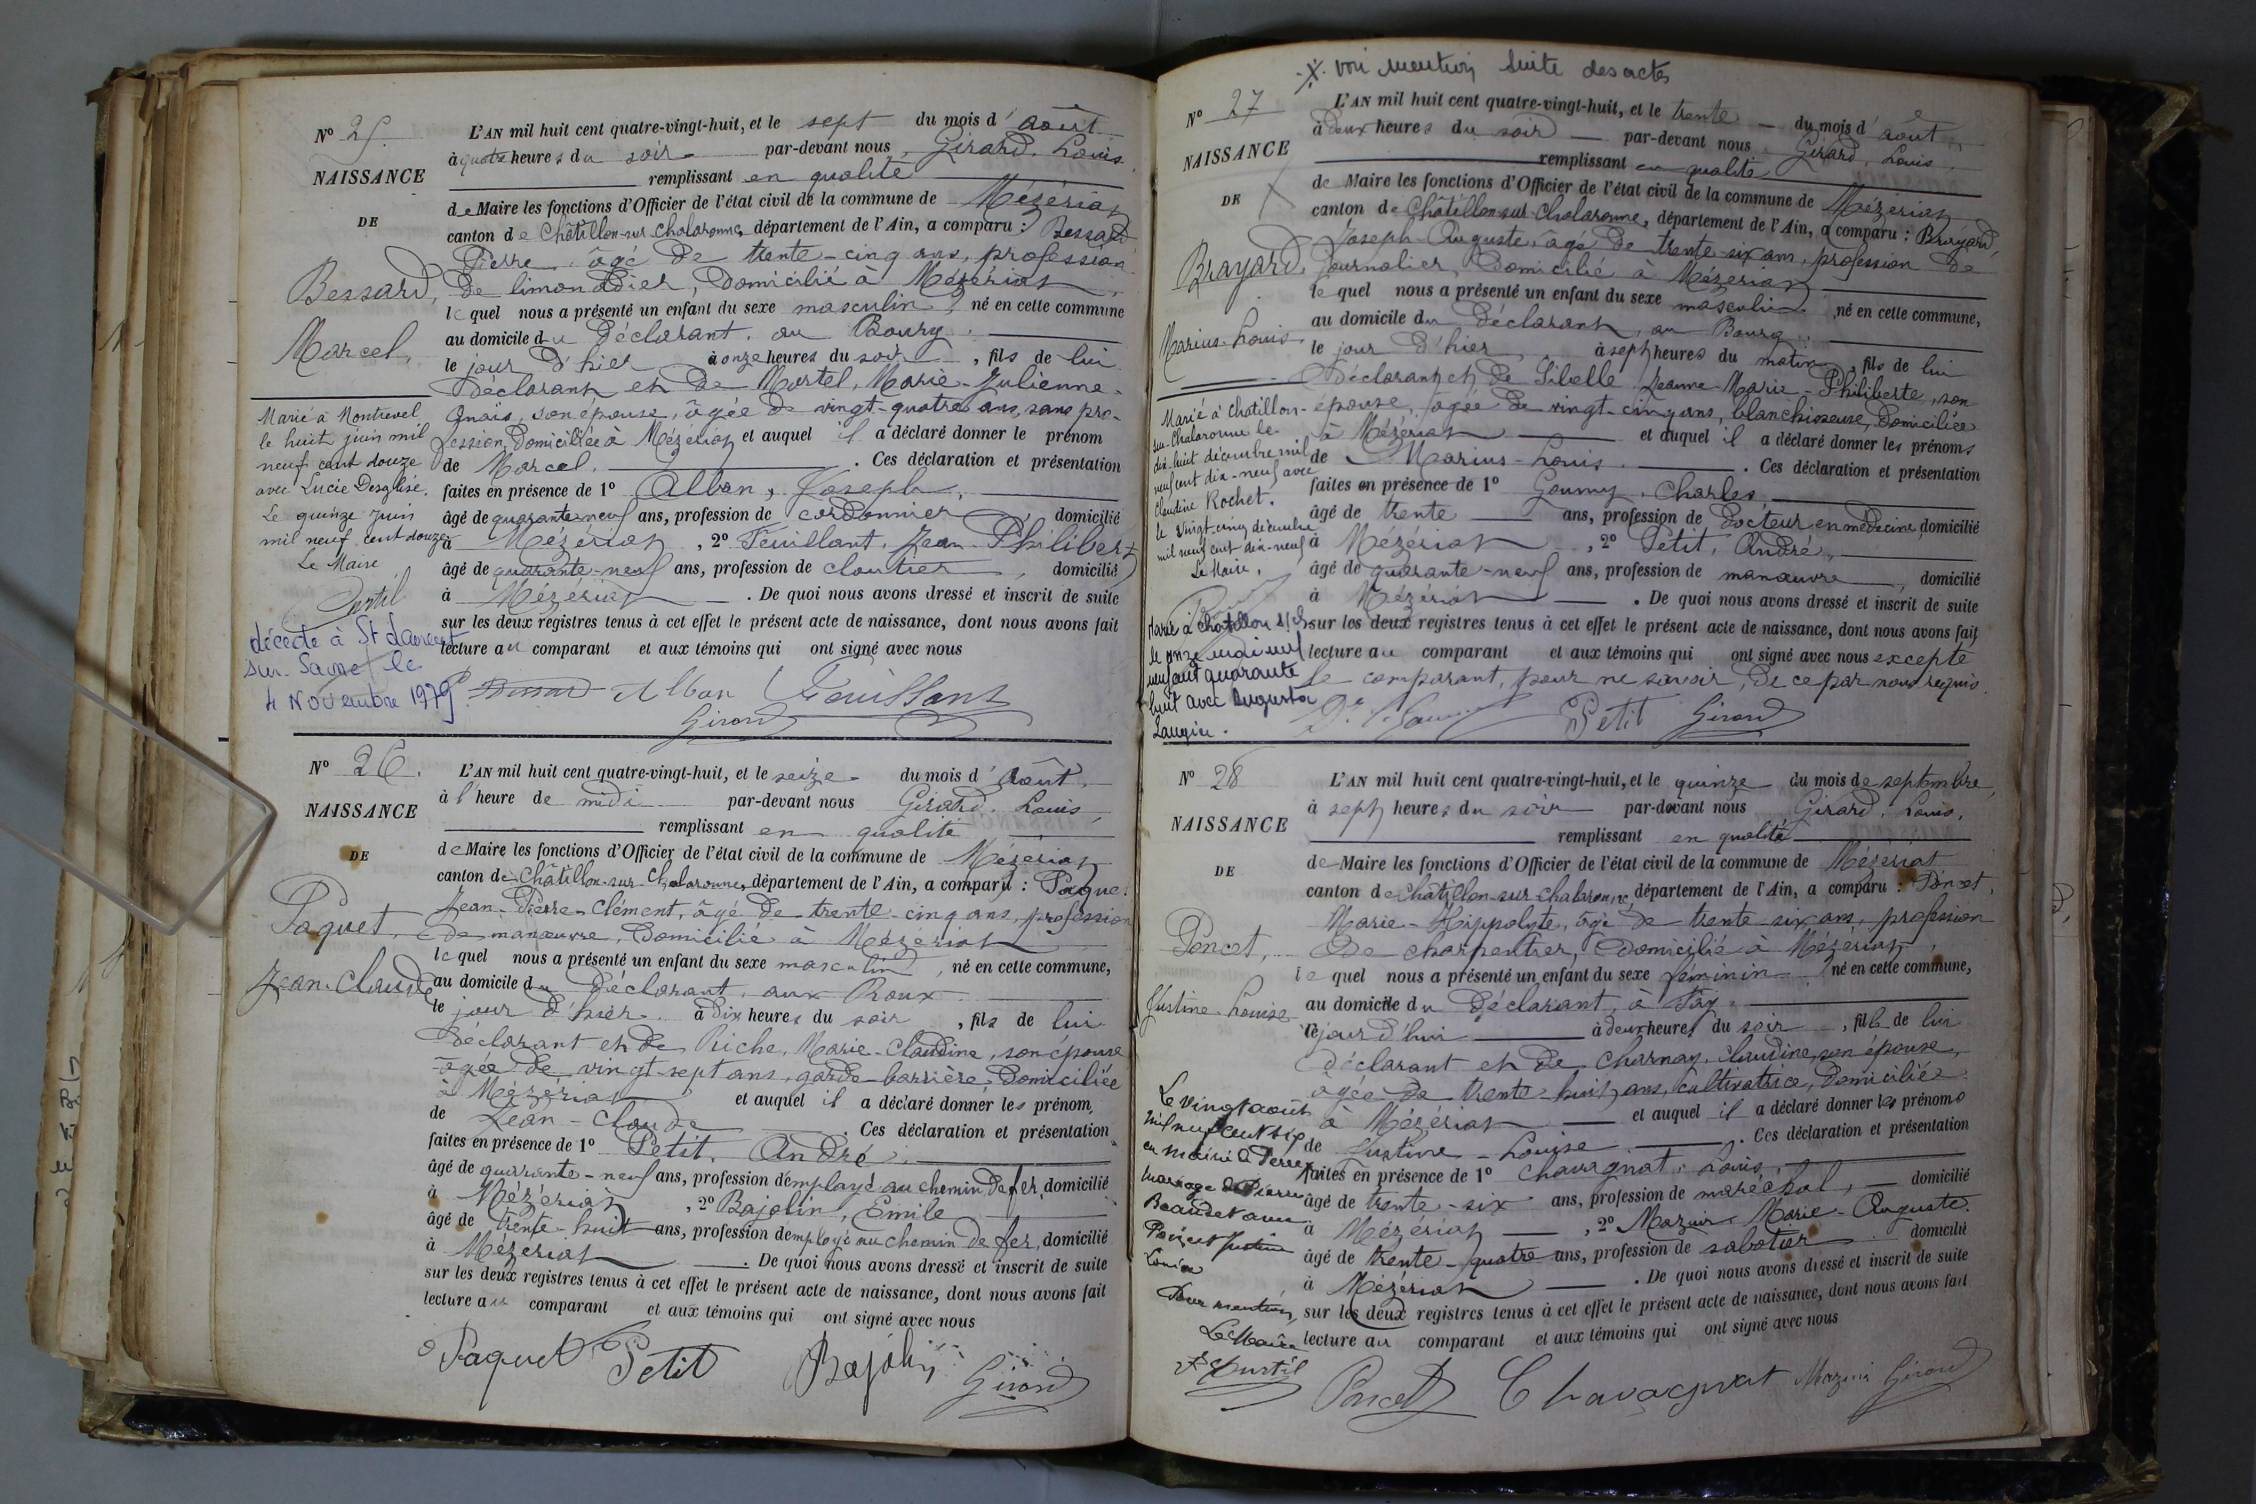 N° 25.
NAISSANCE
DE
Bessard,
Marcel,
Marié à Montrevel
le huit juin mil
neuf cent douze
avec Lucie Desglise.
Le quinze Juin
mil neuf cent douze
Le Maire
Curtil
décédé à St Laurent
sur Saône le
4 Novembre 1979
L'AN mil huit cent quatre-vingt-huit, et le sept du mois d'août
à quatre heures du soir par-devant nous Girard, Louis
remplissant en qualité
de Maire les fonctions d'Officier de l'état civil de la commune de Mézériat
canton de Châtillon-sur-Chalaronne, département de l'Ain, a comparu : Bessard
Pierre, âgé de trente-cinq ans, profession
de limonadier, domicilié à Mézériat,
lequel nous a présenté un enfant du sexe masculin, né en cette commune
au domicile du déclarant, au Bourg.
le jour d'hier à onze heures du soir, fils de lui
déclarant et de Martel, Marie-Julienne-
son épouse, âgée de vingt-quatre ans, sans pro-
fession, domiciliée à Mézériat et auquel il a déclaré donner le prénom
de Marcel. Ces déclaration et présentation
faites en présence de 1° Alban, Joseph,
âgé de quarante-neuf ans, profession de cordonnier domicilié
à Mézériat, 2° Feuillant, Jean-Philibert
âgé de quarante-neuf ans, profession de cloutier, domicilié
à Mézériat. De quoi nous avons dressé et inscrit de suite
sur les deux registres tenus à cet effet le présent acte de naissance, dont nous avons fait
lecture au comparant et aux témoins qui ont signé avec nous
Bessard Alban Feuillant
Girard
N° 26.
NAISSANCE
DE
Paquet,
Jean-Claude
L'AN mil huit cent quatre-vingt-huit, et le seize du mois d'août
à l'heure de midi par-devant nous Girard, Louis,
remplissant en qualité
de Maire les fonctions d'Officier de l'état civil de la commune de Mézériat
canton de Châtillon-sur-Chalaronne, département de l'Ain, a comparu : Paquet
Jean-Pierre-Clément, âgé de trente-cinq ans, profession
de manœuvre, domicilié à Mézériat
lequel nous a présenté un enfant du sexe masculin, né en cette commune,
au domicile du déclarant, aux Roux.
le jour d'hier à dix heures du soir, fils de lui
déclarant et de Riche, Marie-Claudine, son épouse
âgée de vingt-sept ans, garde-barrière, domiciliée
à Mézériat et auquel il a déclaré donner les prénom,
de Jean-Claude. Ces déclaration et présentation
faites en présence de 1° Petit, André,
âgé de quarante-neuf ans, profession d'employé au chemin de fer, domicilié
à Mézériat, 2° Bajolin, Emile
âgé de trente-huit ans, profession d'employé au chemin de fer, domicilié
à Mézériat. De quoi nous avons dressé et inscrit de suite
sur les deux registres tenus à cet effet le présent acte de naissance, dont nous avons fait
lecture au comparant et aux témoins qui ont signé avec nous
Paquet Petit Bajolin Girard
voir mention suite des actes
N° 27
NAISSANCE
DE
Brayard,
Marius-Louis
Marié à Chatillon-
sur-Chalaronne le
dix-huit décembre mil
neuf cent dix-neuf avec
Claudine Rochet.
le vingt-cinq décembre
mil neuf cent dix-neuf
Le Maire,
Marié à Chatillon s/Ch
le onze mai mil
neuf cent quarante
huit avec Augusta
Laugier.
L'AN mil huit cent quatre-vingt-huit, et le trente du mois d'août
à deux heures du soir par-devant nous Girard, Louis,
remplissant en qualité
de Maire les fonctions d'Officier de l'état civil de la commune de Mézériat
canton de Châtillon-sur-Chalaronne, département de l'Ain, a comparu : Brayard,
Joseph-Auguste, âgé de trente-six ans, profession de
journalier, domicilié à Mézériat
lequel nous a présenté un enfant du sexe masculin, né en cette commune,
au domicile du déclarant, au Bourg.
le jour d'hier à sept heures du matin, fils de lui
déclarant et de Sibelle Jeanne-Marie-Philiberte, son
épouse, âgée de vingt-cinq ans, blanchisseuse, domiciliée
à Mézériat et auquel il a déclaré donner les prénoms
de Marius-Louis. Ces déclaration et présentation
faites en présence de 1° Goumy, Charles
âgé de trente ans, profession de docteur en médecine, domicilié
à Mézériat, 2° Petit, André,
âgé de quarante-neuf ans, profession de manœuvre, domicilié
à Mézériat. De quoi nous avons dressé et inscrit de suite
sur les deux registres tenus à cet effet le présent acte de naissance, dont nous avons fait
lecture au comparant et aux témoins qui ont signé avec nous excepté
le comparant, pour ne savoir, de ce par nous requis.
Petit Girard
N° 28
NAISSANCE
DE
Poncet,
Justine-Louise
Le vingt août
mil neuf cent dix
en mairie à Perrex
mariage de Pierre
Beaudet avec
Poncet Justine
Louise
Pour mention,
Le Maire
Curtil
L'AN mil huit cent quatre-vingt-huit, et le quinze du mois de septembre,
à sept heures du soir par-devant nous Girard, Louis,
remplissant en qualité
de Maire les fonctions d'Officier de l'état civil de la commune de Mézériat
canton de Châtillon-sur-Chalaronne, département de l'Ain, a comparu : Poncet,
Marie-Hippolyte, âgé de trente-six ans, profession
de charpentier, domicilié à Mézériat,
lequel nous a présenté un enfant du sexe féminin, né en cette commune,
au domicile du déclarant, à Fay.
le jour d'hui à deux heures du soir, fille de lui
déclarant et de Charnay, Claudine, son épouse,
âgée de trente-huit ans, cultivatrice, domiciliée
à Mézériat et auquel il a déclaré donner les prénoms
de Justine-Louise. Ces déclaration et présentation
faites en présence de 1° Chavagnat, Louis,
âgé de trente-six ans, profession de maréchal, domicilié
à Mézériat, 2° Mazuir, Marie-Auguste.
âgé de trente-quatre ans, profession de sabotier domicilié
à Mézériat. De quoi nous avons dressé et inscrit de suite
sur les deux registres tenus à cet effet le présent acte de naissance, dont nous avons fait
lecture au comparant et aux témoins qui ont signé avec nous
Poncet Chavagnat Mazuir Girard